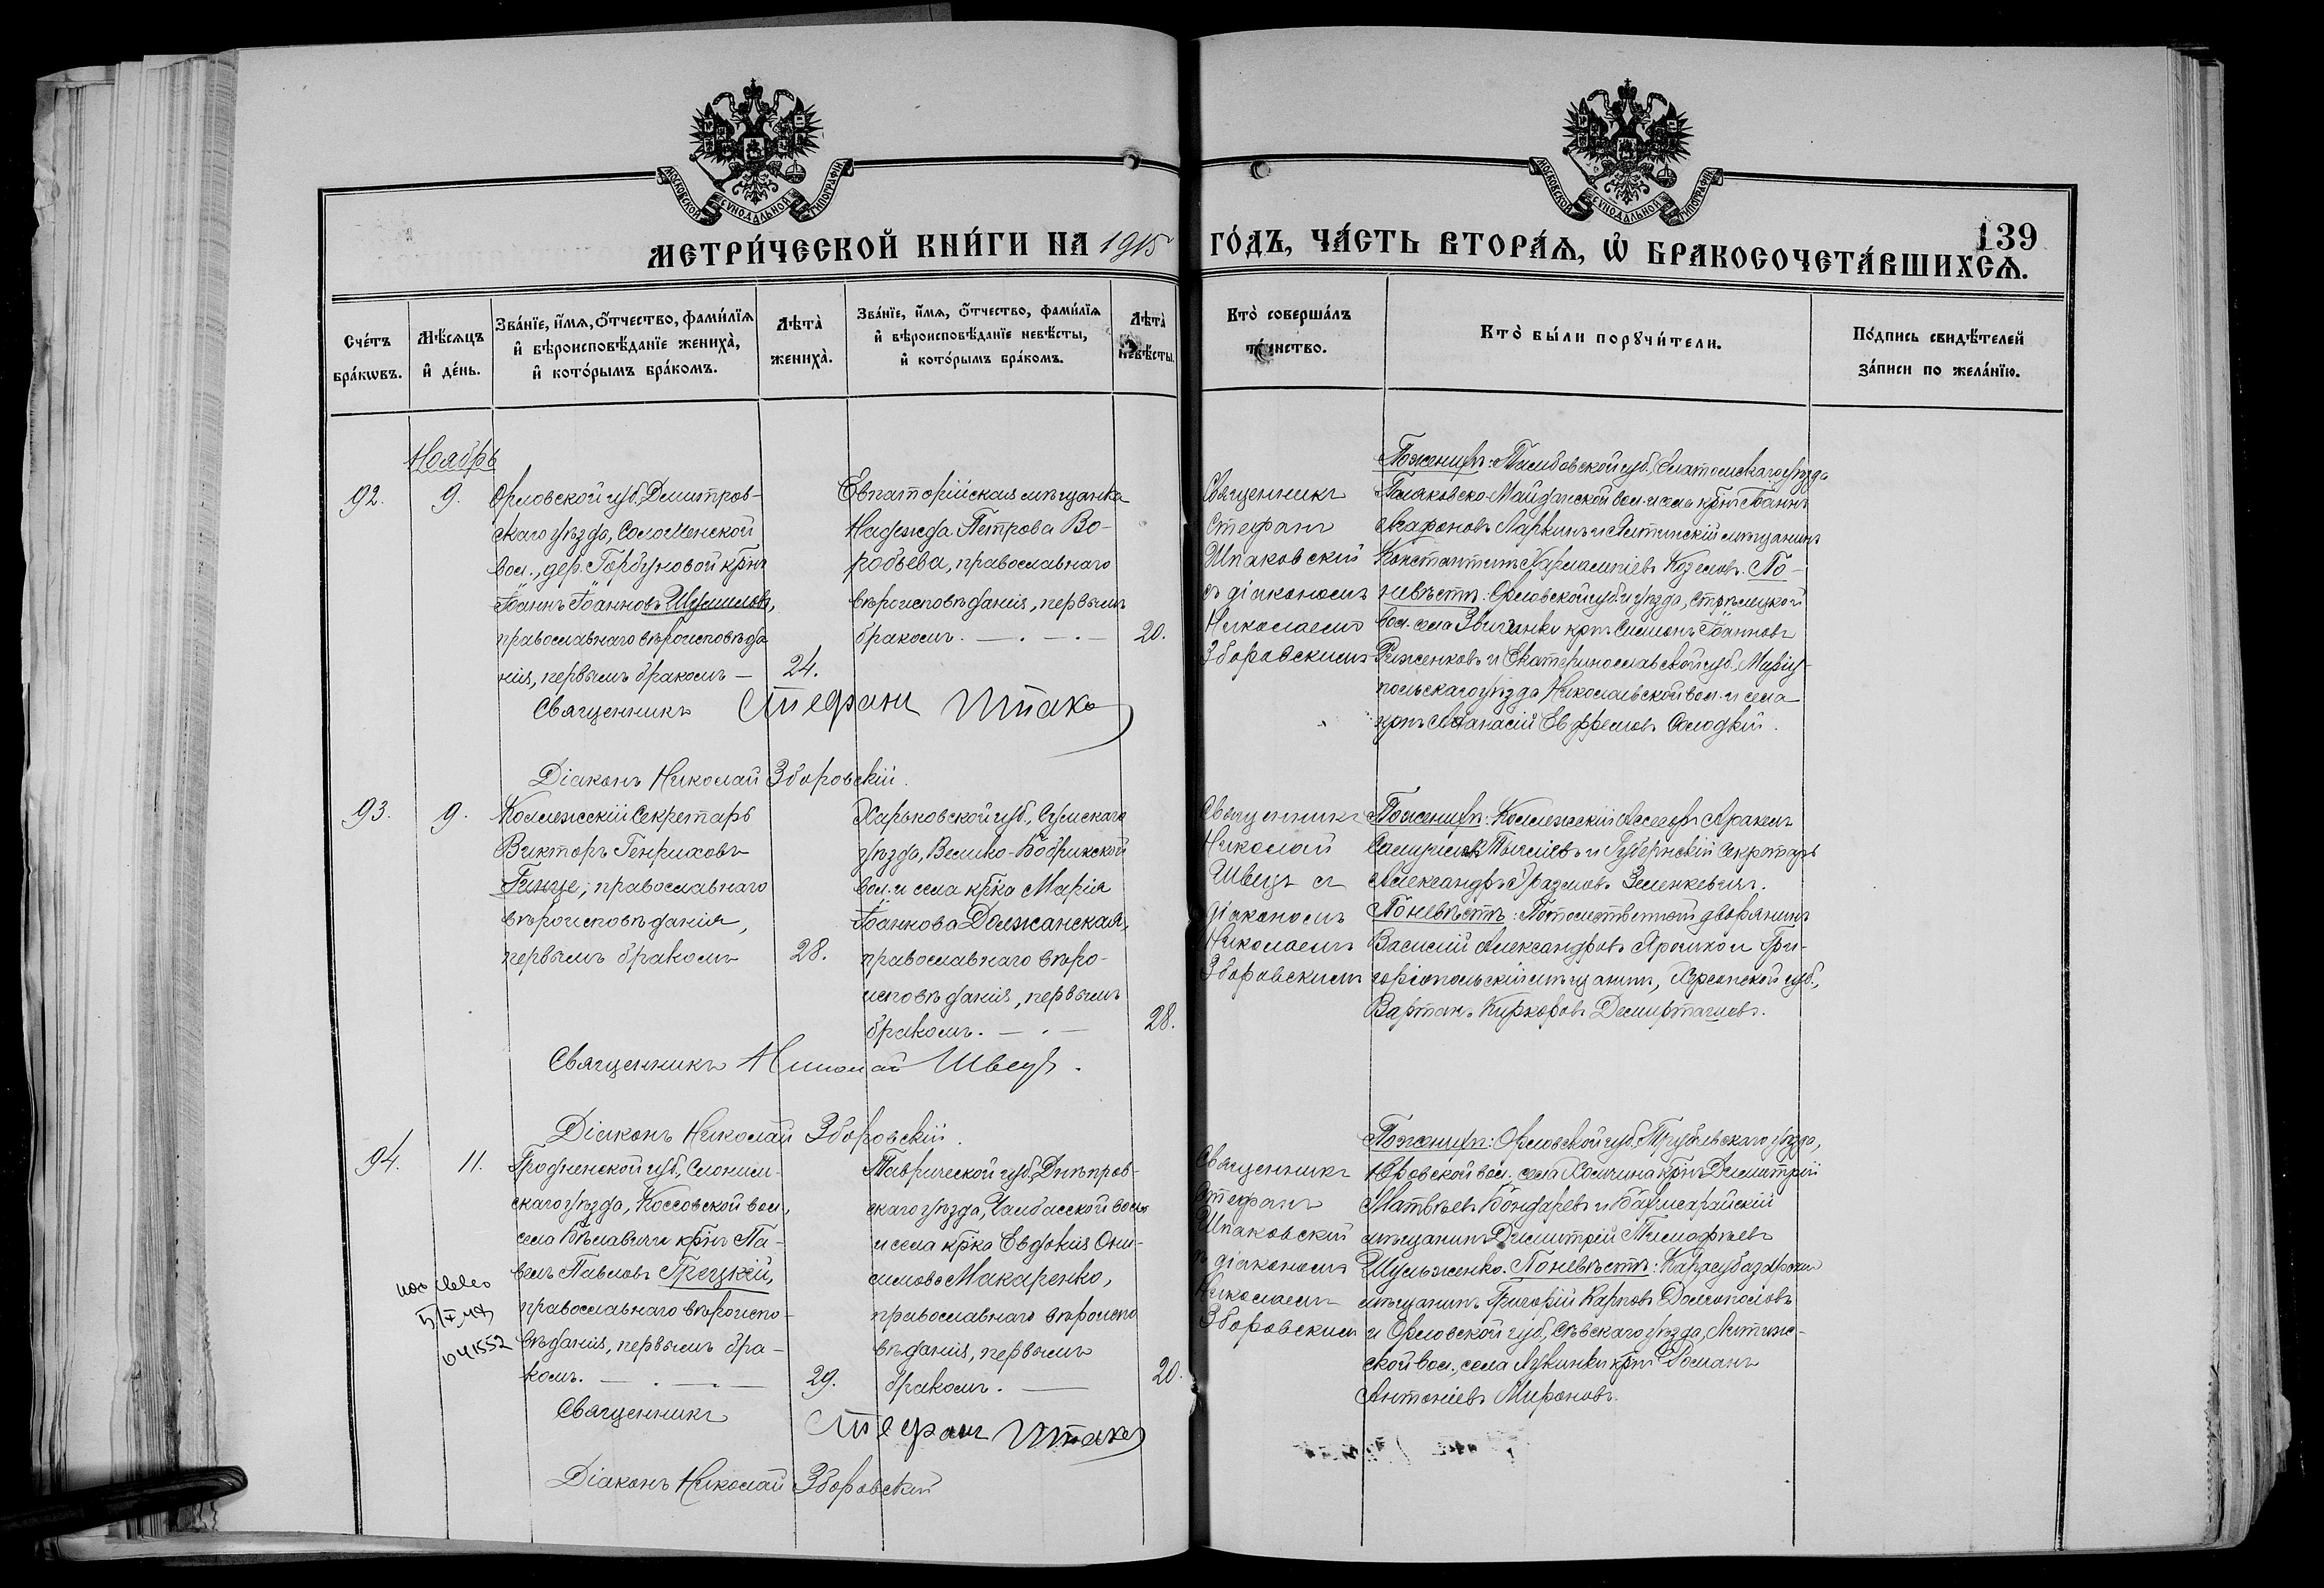 МОСКОВСКОЙ СѴНОДАЛЬНОЙ ТИПОГРАФІИ
МОСКОВСКОЙ СѴНОДАЛЬНОЙ ТИПОГРАФІИ
139
МЕТРИ́ЧЕСКОЙ КНИ́ГИ НА 1915 ГО́ДЪ, ЧА́СТЬ ВТОРА́Ѧ, Ѿ БРАКОСОЧЕТА́ВШИХСѦ.
Сче́тъ бра́кѡвъ.
Мѣ́сѧцъ и҆ де́нь.
Зва́нїе, и҆́мѧ, ѻ҆́тчество, фами́лїѧ и҆ вѣроисповѣ́данїе жениха̀, и҆ кото́рымъ бра́комъ.
Лѣта̀ жениха̀.
Зва́нїе, и҆́мѧ, ѻ҆́тчество, фами́лїѧ и҆ вѣроисповѣ́данїе невѣ́сты, и҆ кото́рымъ бра́комъ.
Лѣта̀ невѣ́сты.
Кто̀ соверша́лъ та́инство.
Кто̀ бы́ли порꙋчи́тели.
По́дпись свидѣ́телей за́писи по жела́нїю.
Ноябрь
92.
9.
Орловской губ., Дмитров-
скаго уѣзда, Соломенской
вол., дер. Горбуновой крнъ
Іоаннъ Іоанновъ Шумиловъ,
православнаго вѣроисповѣда
нія, первымъ бракомъ —
24.
Евпаторійская мѣщанка
Надежда Петрова Во-
робьева, православнаго
вѣроисповѣданія, первымъ
бракомъ. — . — . —
20.
Священникъ
Стефанъ
Шпаковскій
съ діакономъ
Николаемъ
Зборовскимъ
По женихѣ: Тамбовской губ., Елатомскаго уѣзда
вол. и села крнъ Іоаннъ
Агафоновъ Ларкинъ и Ялтинскій мѣщанинъ
Константинъ Харлампіевъ Козловъ. По-
невѣстѣ: Орловской губ. и уѣзда, Стрѣлецкой
вол. села Звягинки крнъ Симеонъ Іоанновъ
Рыженковъ и Екатеринославской губ., Маріу-
польскаго уѣзда Николаевской вол. и села
крнъ Аѳанасій Евфремовъ Солодкій.
Священникъ Стефанъ Шпако
Діаконъ Николай Зборовскій.
93.
9.
Коллежскій Секретарь
Викторъ Генриховъ
Гинце, православнаго
вѣроисповѣданія,
первымъ бракомъ
28.
Харьковской губ., Сумскаго
уѣзда, Велико-Бобрикской
вол. и села крка Марія
Іоаннова Должанская,
православнаго вѣро-
исповѣданія, первымъ
бракомъ. — . —
28.
Священникъ
Николай
Швецъ съ
діакономъ
Николаемъ
Зборовскимъ
По женихѣ: Коллежскій Ассесоръ
и Губернскій Секретарь
Александръ Зеленкевичъ.
По невѣстѣ: Потомственный дворянинъ
Василій Александровъ Ярошко и Гри-
горіопольскій мѣщанинъ, Херсонской губ.,
Вартанъ Киркоровъ
Священникъ Николай Швецъ.
Діаконъ Николай Зборовскій.
94.
11.
Гродненской губ., Слоним-
скаго уѣзда, Коссовской вол.,
села Бѣлавичи крнъ Па-
велъ Павловъ Грецкій,
православнаго вѣроиспо-
вѣданія, первымъ бра-
комъ. — . — . —
29.
Таврической губ., Днѣпров-
скаго уѣзда, Чалбасской вол.
и села крка Евдокія Они-
симова Макаренко,
православнаго вѣроиспо
вѣданія, первымъ
бракомъ. —
20.
Священникъ
Стефанъ
Шпаковскій
съ діакономъ
Николаемъ
Зборовскимъ
По женихѣ: Орловской губ., Трубчевскаго уѣзда,
Юровской вол., села крнъ Димитрій
Матвѣевъ Бондаревъ и Бахчисарайскій
мѣщанинъ Димитрій Тимофѣевъ
Шульженко. По невѣстѣ: Карасубазарскій
мѣщанинъ Григорій Карповъ Долгополовъ
и Орловской губ., Сѣвскаго уѣзда,
ской вол., села крнъ Романъ
Антоніевъ Мироновъ.
041552
Священникъ Стефанъ Шпако
Діаконъ Николай Зборовскій